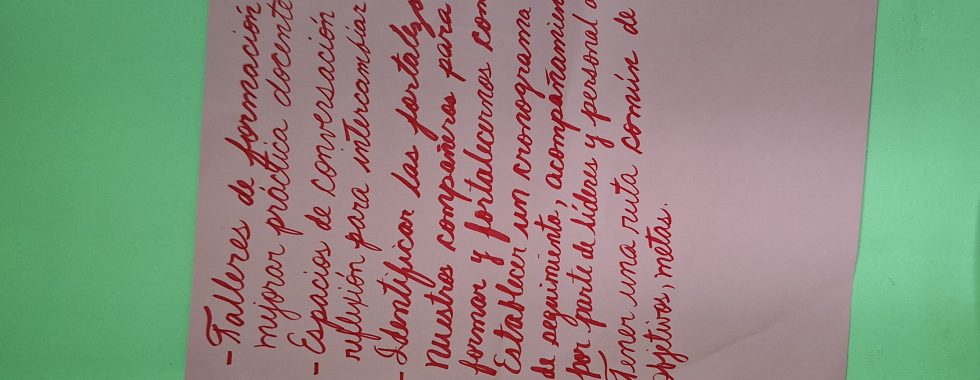 - Talleres de formación
mejorar práctica docente
- Espacios de conversación
reflexión para intercambiar
- Identificar las fortalezas
nuestros compañeros para
formar y fortalecernos com
Establecer un cronograma
de seguimiento, acompañamien
por parte de líderes y personal
Tener una ruta común de
objetivos, metas.